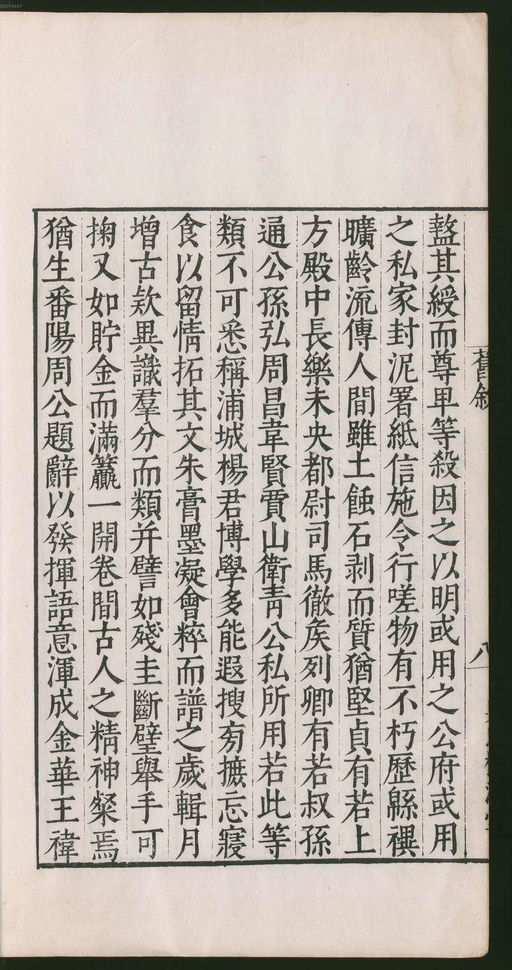 盭其綬而尊卑等殺因之以明或用之公府或用
之私家封泥署紙信施令行嗟物有不朽歷緜禩
曠齡流傳人間雖土蝕石剥而質猶堅貞有若上
方殿中長樂未央都尉司馬徹矦列卿有若叔孫
通公孫弘周昌韋賢賈山衛青公私所用若此等
類不可悉稱浦城楊君博學多能遐搜旁摭忘寢
食以留情拓其文朱膏墨凝會粹而譜之歲輯月
增古欵異識羣分而類并譬如殘圭斷璧舉手可
掬又如貯金而滿籯一開卷間古人之精神粲焉
猶生番陽周公題辭以發揮語意渾成金華王褘
舊敘
八